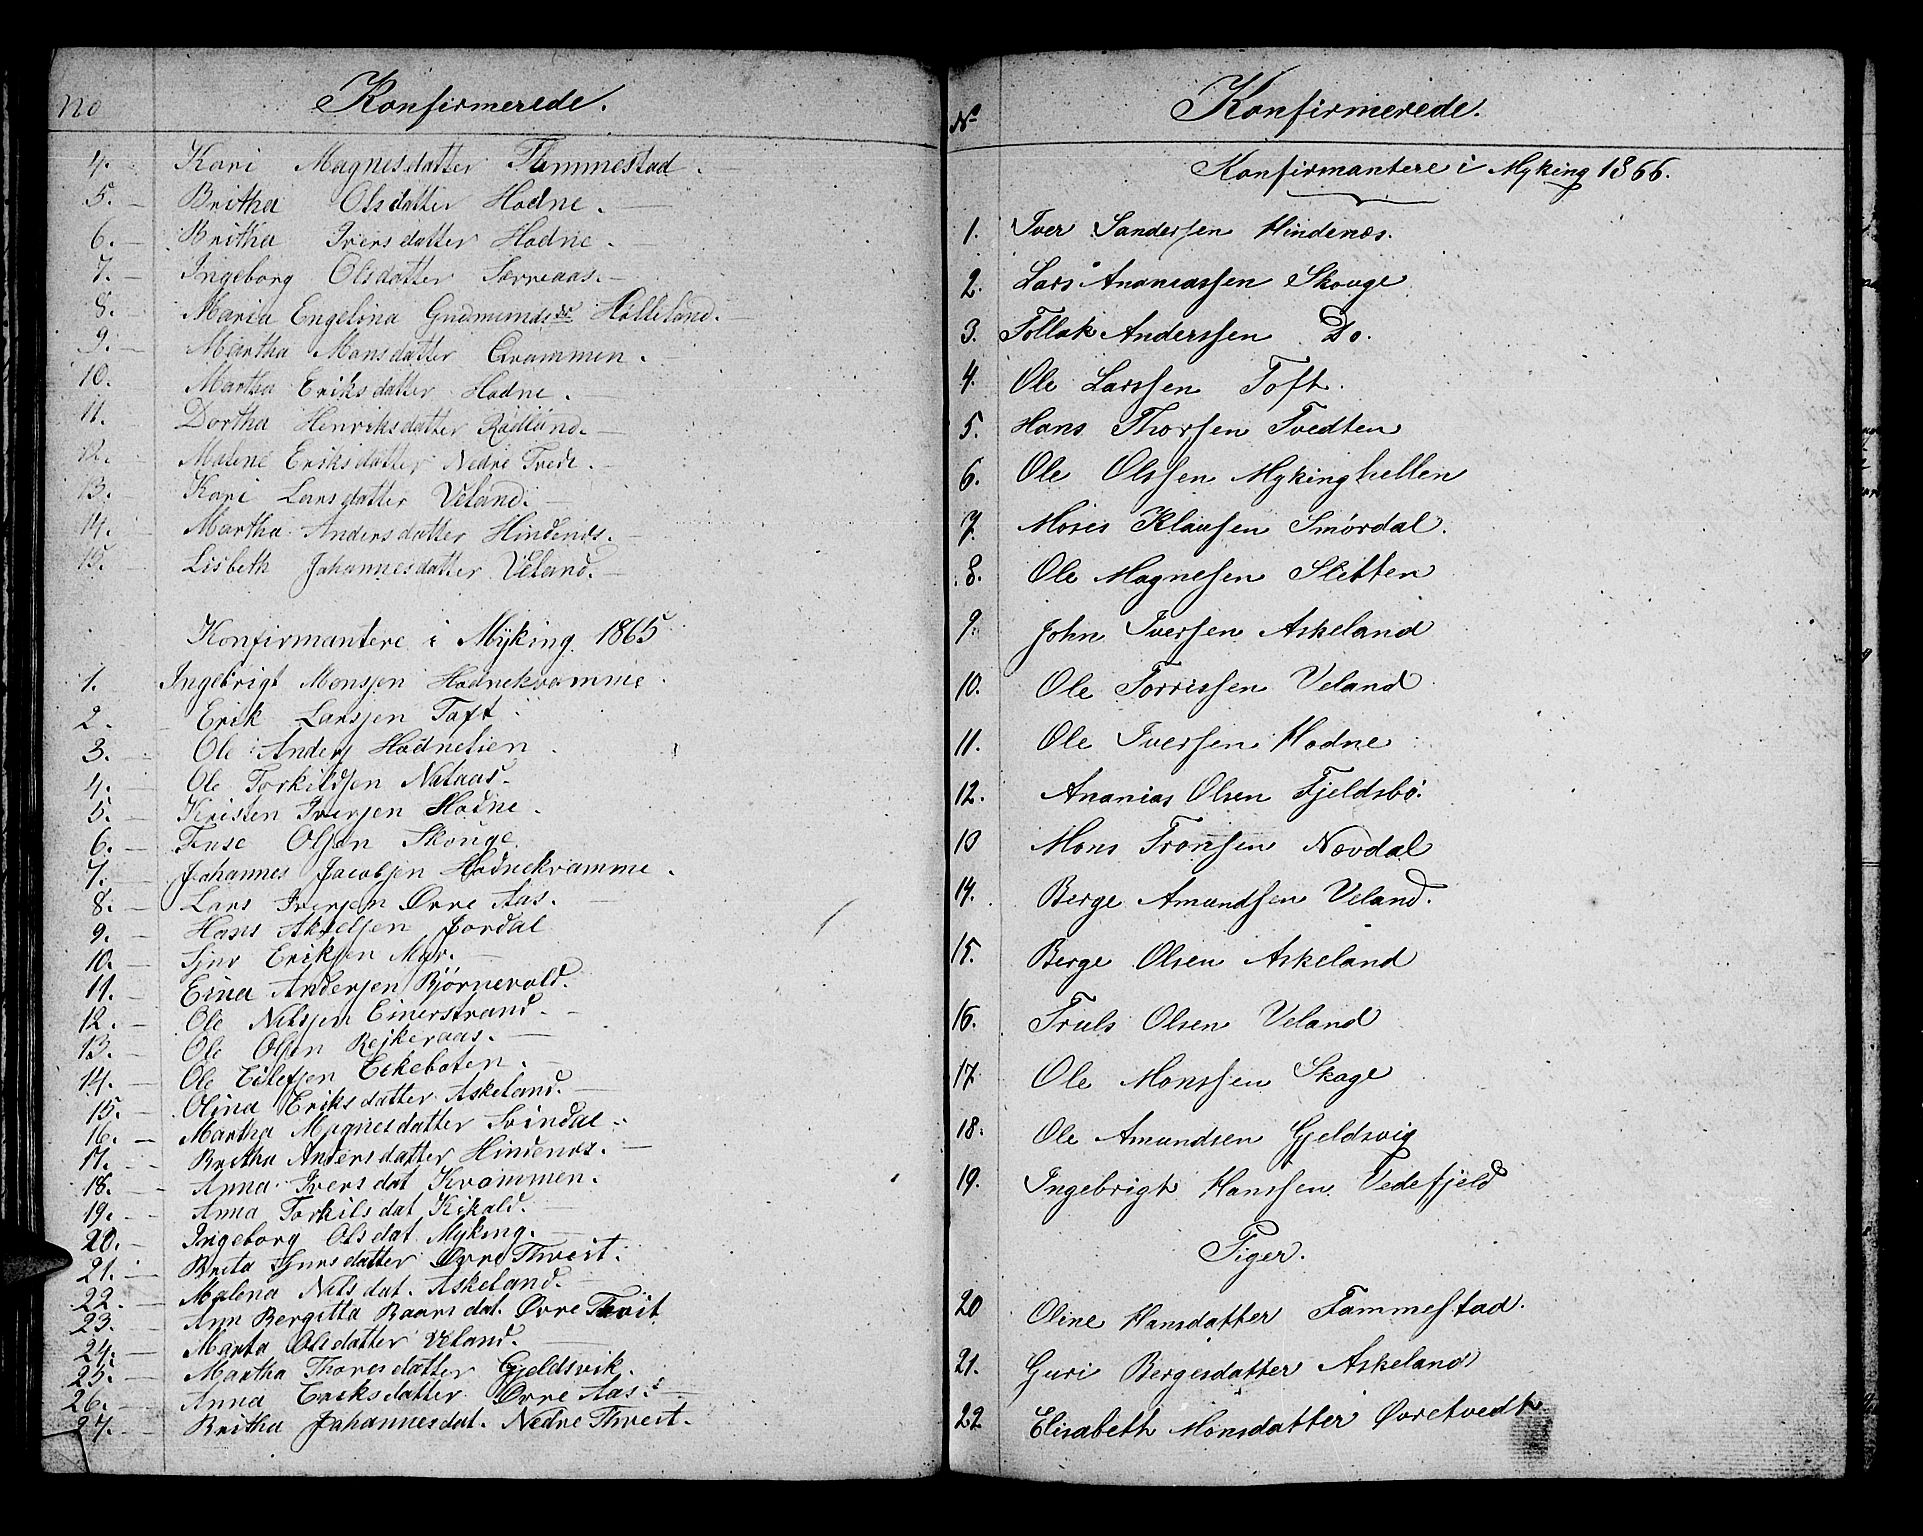 No Konfirmerede.
4. Kari Magnesdatter Tlemmestad.
5. Britha Olsdatter Hodne.
6. Britha Iversdatter Hodne.
7. Ingeborg Olsdatter Særreaas.
8. Maria Engelina Gudmundsdr Hølleland.
9. Martha Monsdatter Qrammen.
10. Martha Eriksdatter Hodne.
11. Dortha Henriksdatter Rødland.
12. Malene Eriksdatter Nedre Tvedt.
13. Kari Larsdatter Veland.
14. Martha Andersdatter Hindenæs.
15. Lisbeth Johannesdatter Veland.
Konfirmantere i Myking 1865
1. Ingebrigt Monsjen Hodnekvamme.
2. Erik Larsjen Toft.
3. Ole Andersj Hodnelien.
4. Ole Torkildsjen Nataas.
5. Kristen Iversjen Hodne.
6. Olsjen Skouge.
7. Johannes Jacobjen Hodnekvamme.
8. Lars Iversjen Øvre Aas.
9. Hans Akseljen Jordal
10. Sjur Eriksjen Myr.
11. Einar Andersjen Bjørnevold.
12. Ole Nilsjen Einerstrand.
13. Ole Olsjen Rejkeraas.
14. Ole Eilefjen Eekeboten.
15. Olina Eriksdatter Askeland.
16. Martha Magnesdatter Svindal.
17. Britha Andersdatter Hindenæs.
18. Anna Iversdat Kvammen.
19. Anna Torkilsdat Kikald.
20. Ingeborg Olsdat Myking.
21. Brita Sjursdatter Øvre Thveit.
22. Malena Nilsdat. Askeland.
23. Ann Bergitta Baarsdat. Øvre Thveit
24. Marta Olsdatter Veland.
25. Martha Thoresdatter Gjeldsvik.
26. Anna Eriksdatter Øvre Aas.
27. Britha Johannesdat. Nedre Thveit.
No Konfirmerede.
Konfirmantere i Myking 1866.
1. Iver Sanderssen Hindenæs.
2. Lars Ananiassen Skouge
3. Tollak Anderssen Do.
4. Ole Larssen Toft.
5. Hans Thorssen Tvedten
6. Ole Olssen Mykinghellen
7. Moses Klausen Smørdal.
8. Ole Magnesen Sletten
9. John Iversen Askeland
10. Ole Torrissen Veland
11. Ole Iversen Hodne
12. Ananias Olsen Fjeldsbø.
13 Mons Tronsen Nøvdal
14. Berge Amundsen Veland.
15. Berge Olsen Askeland
16. Truls Olsen Veland
17. Ole Monssen Skage
18. Ole Amundsen Gjeldsvig
19. Ingebrigt Hanssen Vedefjeld
Piger.
20 Oline Hansdatter Tammestad.
21. Guri Bergesdatter Askeland
22 Elisabeth Monsdatter Øvretvedt